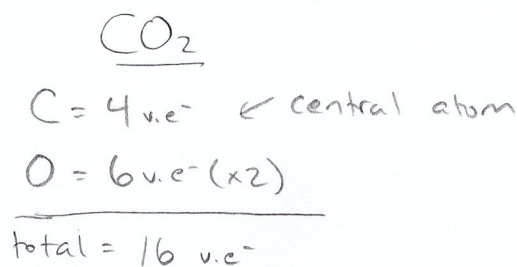 CO₂
C = 4 v.e⁻ ← central atom
O = 6 v.e⁻ (x2)
total = 16 v.e⁻